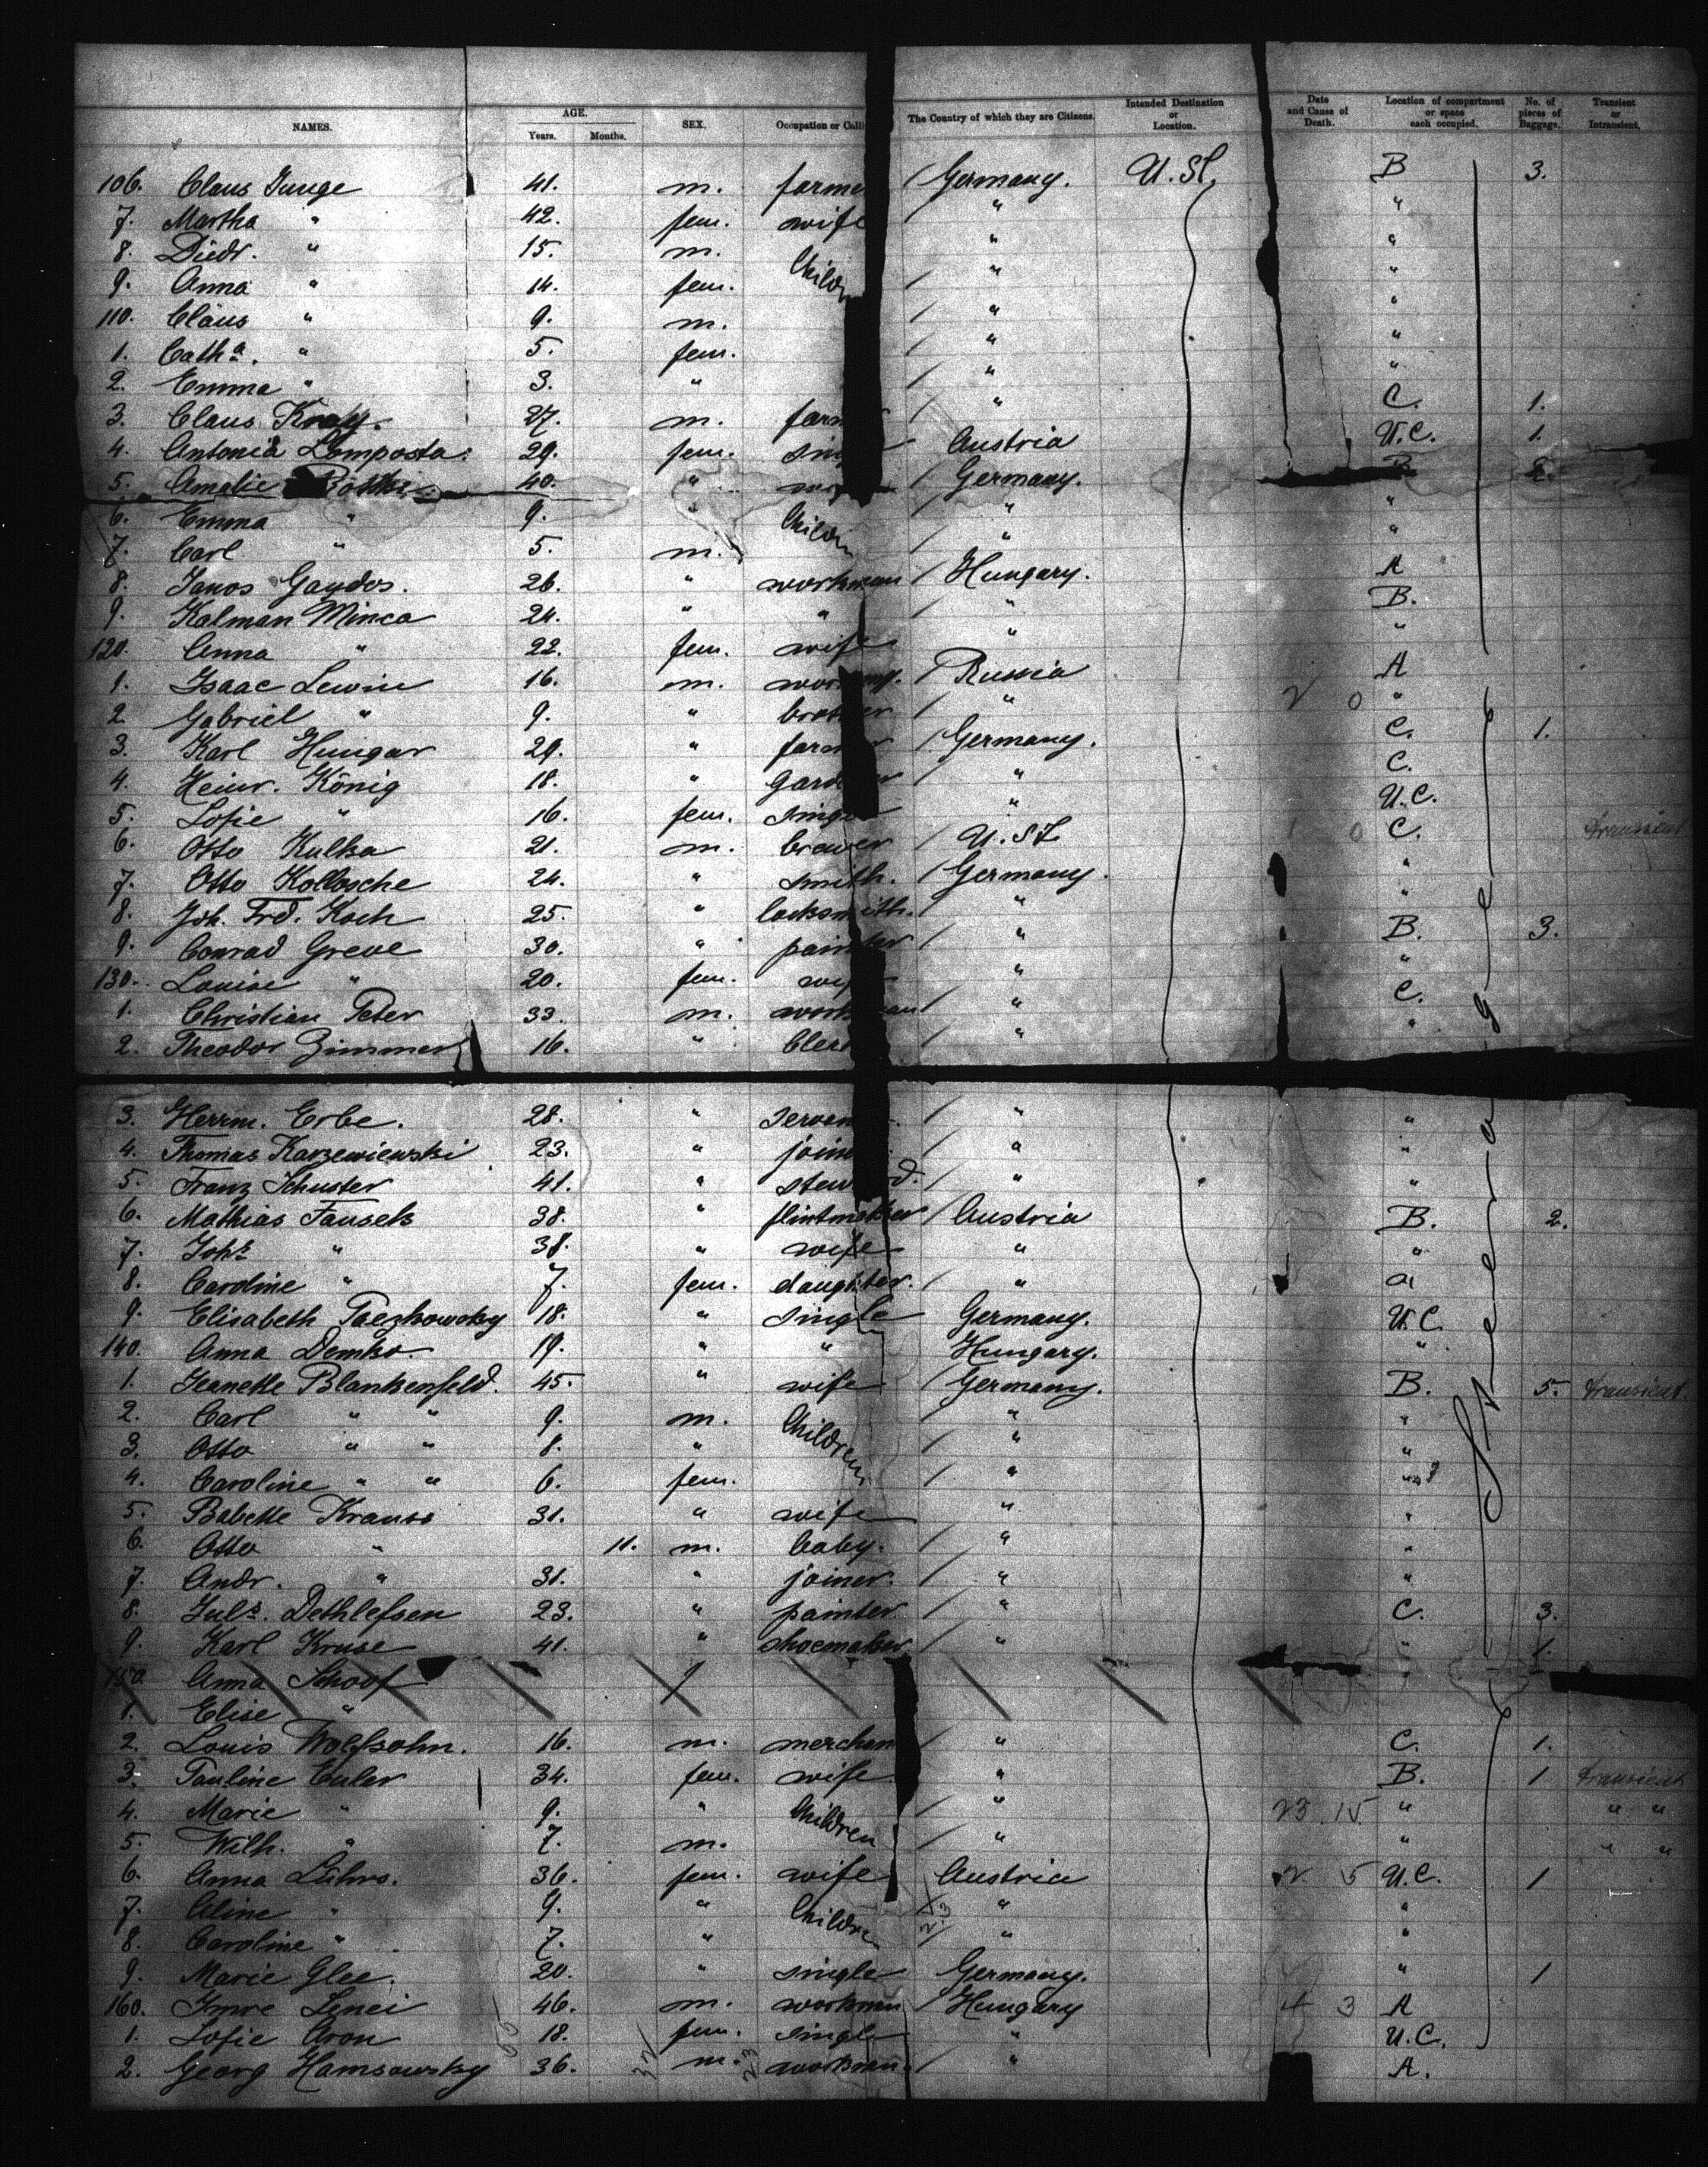 NAMES. AGE. Years. Months. SEX. Occupation or Calli The Country of which they are Citizens. Intended Destination or Location. Date and Cause of Death. Location of compartment or space each occupied. No. of pieces of Baggage. Transient or Intransient.
106. Claus Junge 41. m. farme / Germany. U. St. B 3.
7. Martha " 42. fem. wife " "
8. Diedr. " 15. m. Childr " "
9. Anna " 14. fem. / " "
110. Claus " 9. m. / " "
1. Cath a. " 5. fem. / " "
2. Emma " 3. " / " "
3. Claus 27. m. farm / " C. 1.
4. Antonia Lomposta. 29. fem. sing Austria U.C. 1.
5. Amalie 40. " / Germany. B
6. Emma " 9. " Childr / " "
7. Carl " 5. m. / " "
8. Janos Gaydos. 26. " workman / Hungary. A
9. Kalman Minca 24. " " / " B.
120. Anna " 22. fem. wife " "
1. Isaac Lewin 16. m. / Russia A
2. Gabriel " 9. " brother / " 2 0 "
3. Karl Hungar 29. " farmer / Germany. C. 1.
4. Heinr. König 18. " / " C.
5. Sofie " 16. fem. single " U.C.
6. Otto Kulka 21. m. brewer / U. St. 0 C. transient
7. Otto Kollosche 24. " smith. / Germany. "
8. Joh. Frd. Koch 25. " locksmith. / " "
9. Conrad Greve 30. " painter / " B. 3.
130. Louise " 20. fem. " "
1. Christian Peter 33. m. workman / " C.
2. Theodor Zimmer 16. " Clerk / " "
3. Herrm. Erbe. 28. " / " "
4. Thomas Karzewiewski 23. " joiner / " "
5. Franz Schuster 41. " steward. / " "
6. Mathias Fausek 38. " flintmaker / Austria B. 2.
7. Joh a " 38. " wife " "
8. Caroline " 7. fem. daughter. / " "
9. Elisabeth Paezkowsky 18. " single Germany. U.C.
140. Anna Demko. 19. " " Hungary. "
1. Jeanette Blankenfeld. 45. " wife / Germany. B. 5. transient.
2. Carl " " 9. m. Children / " "
3. Otto " " 8. " / " "
4. Caroline " " 6. fem. / " "
5. Babette Krauss 31. " wife " "
6. Otto " 11. m. baby. / " "
7. Andr. " 31. " joiner. / " "
8. Juls. Dethlefsen 23. " painter. / " C. 3.
9. Karl Kruse 41. " shoemaker / " " 1.
150. Anna Schoof
1. Elise "
2. Louis Wolfsohn. 16. m. merchan " C. 1.
3. Pauline Euler 34. fem. wife " B. 1 transient
4. Marie " 9. " Children / " 23 15 " " "
5. Wilh. " 7. m. / " " " "
6. Anna Lührs. 36. fem. wife Austria 2 5 U.C. 1
7. Aline " 9. " Childre " "
8. Caroline " 7. " / " "
9. Marie Glee. 20. " single Germany. " 1
160. Imre Lenei 46. m. workman / Hungary 4 3 A
1. Sofie Aron 18. fem. single " U.C.
2. Georg Hamsowsky 36. m. workman. / " A.
Steerage